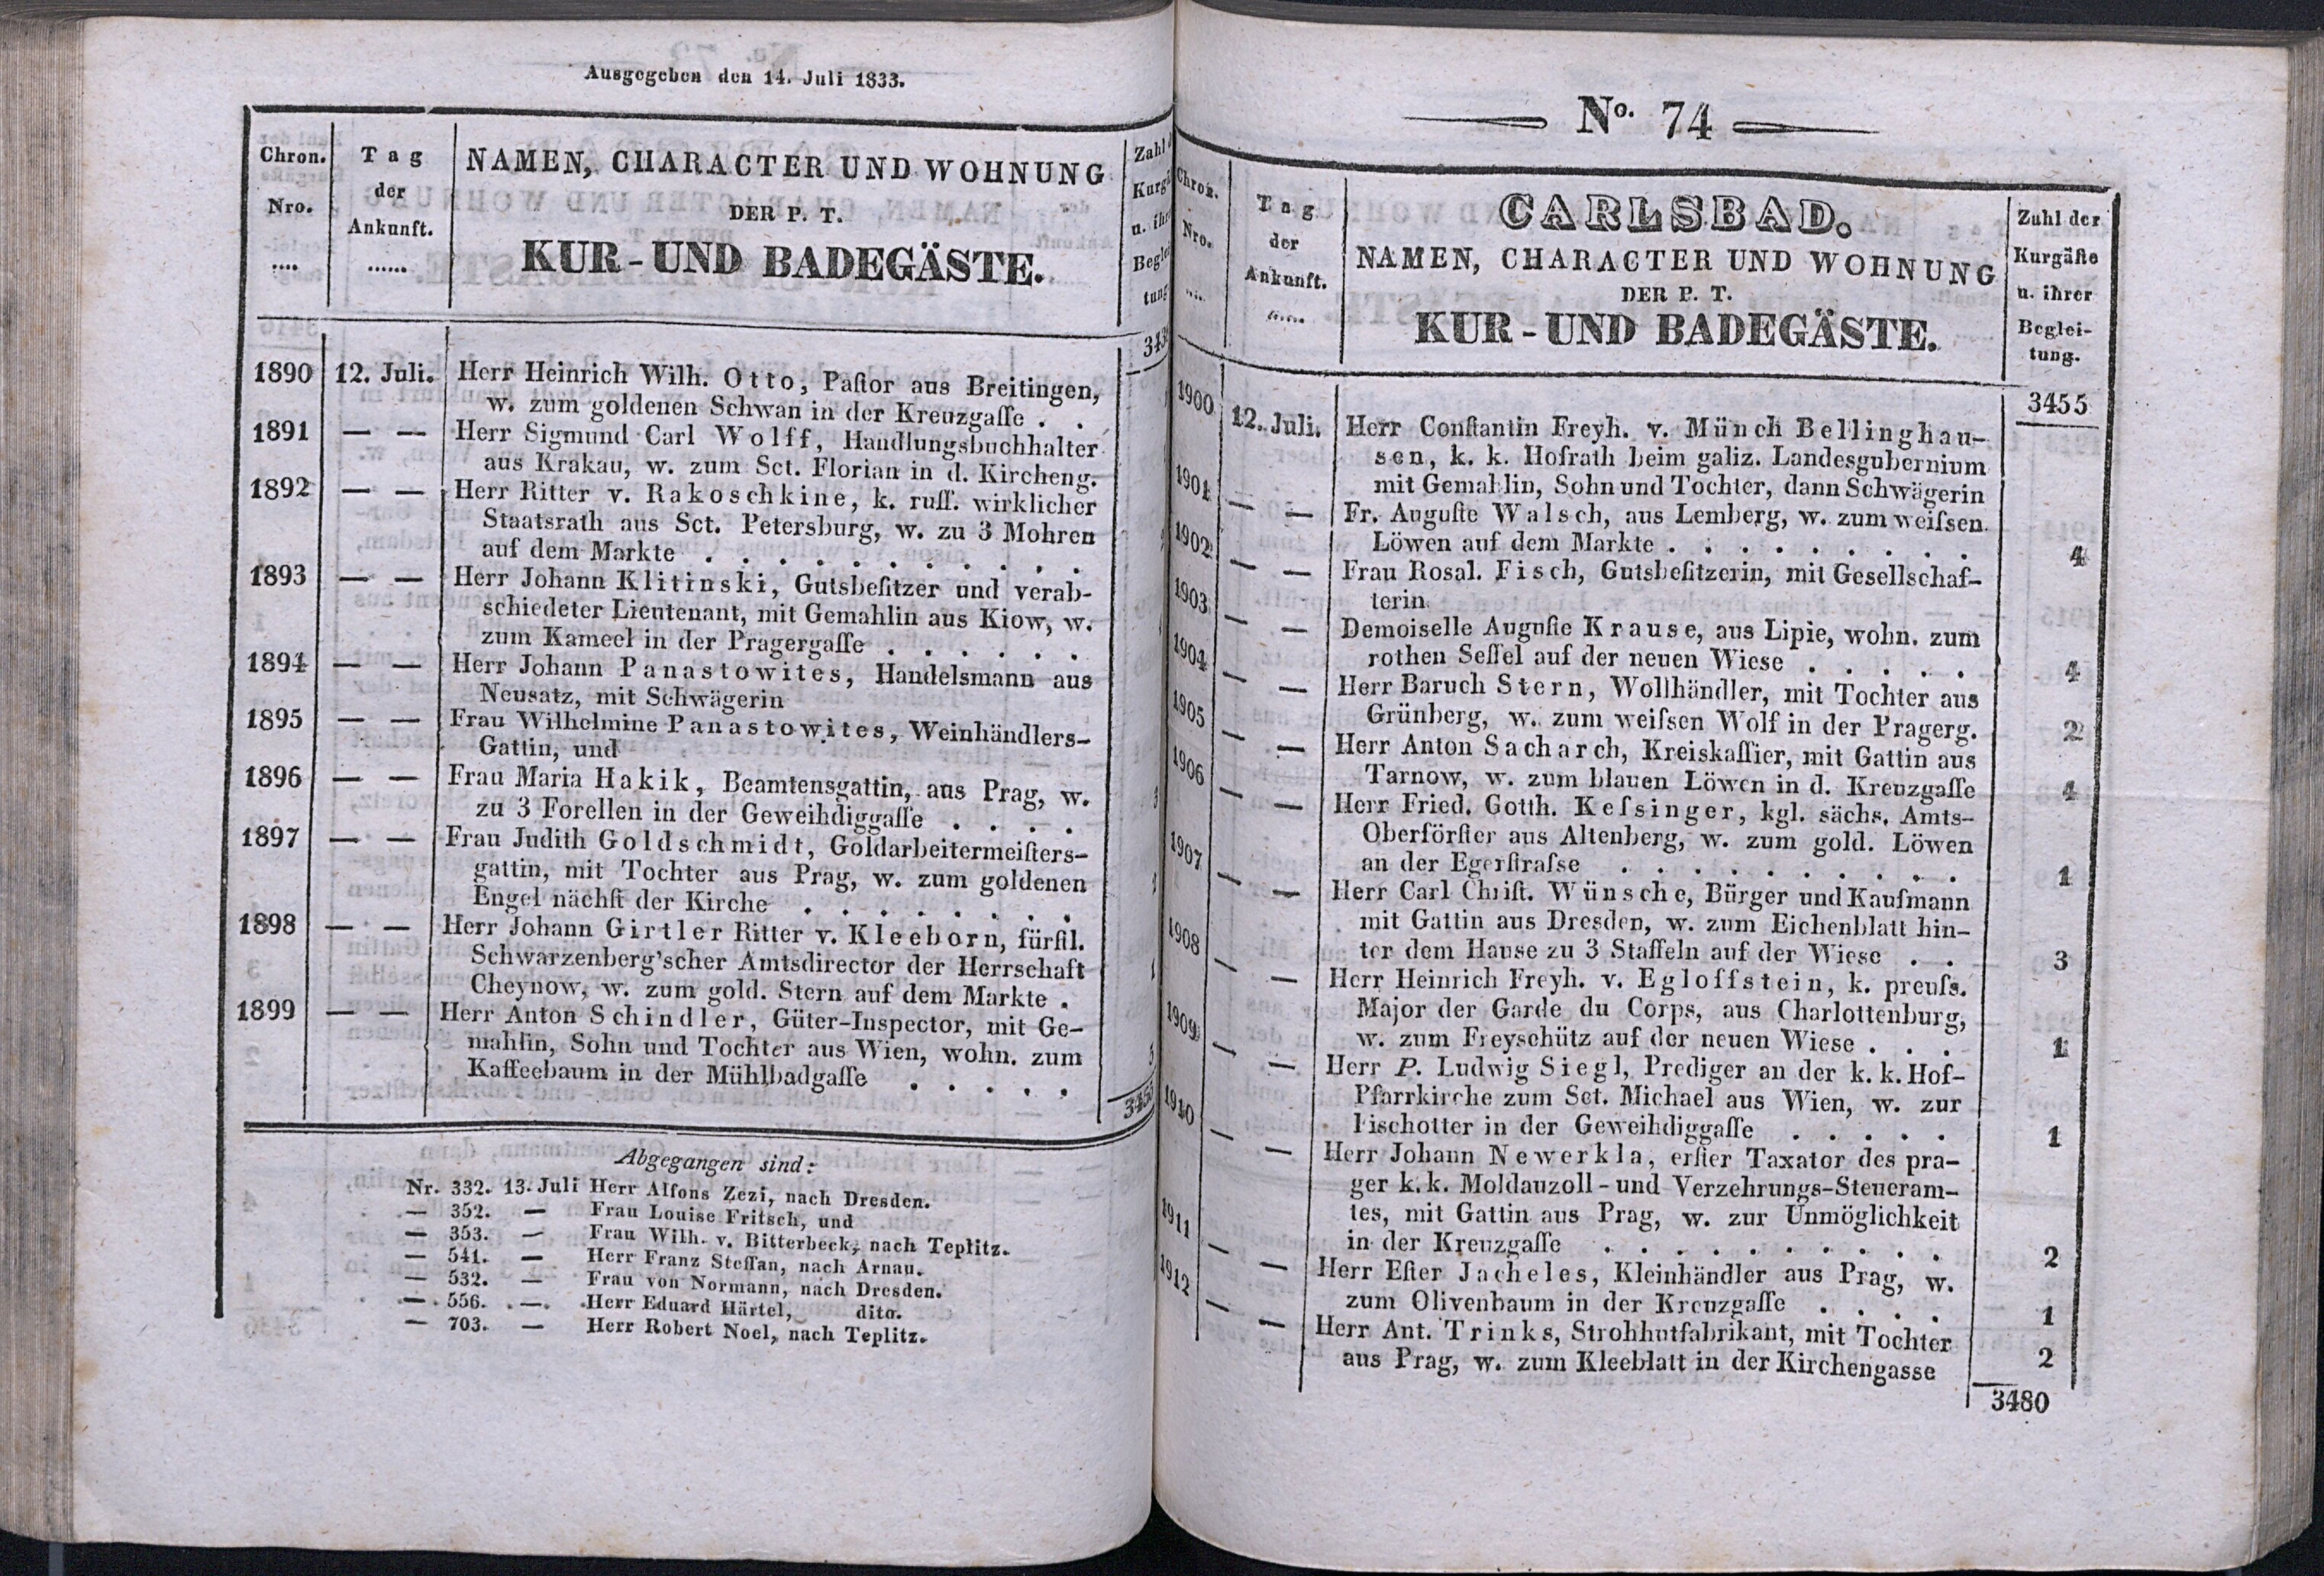 Ausgegeben den 14. Juli 1833.
Chron.
Nro.
....
Tag
der
Ankunft.
......
NAMEN, CHARACTER UND WOHNUNG
DER P. T.
KUR-UND BADEGÄSTE.
Zahl
u. ihr
1890 12. Juli. Herr Heinrich Wilh. Otto, Paſtor aus Breitingen,
w. zum goldenen Schwan in der Kreuzgaſſe . .
1891 — — Herr Sigmund Carl Wolff, Handlungsbuchhalter
aus Krakau, w. zum Sct. Florian in d. Kircheng.
1892 — — Herr Ritter v. Rakoschkine, k. ruſſ. wirklicher
Staatsrath aus Sct. Petersburg, w. zu 3 Mohren
auf dem Markte . . . . . . . . . . .
1893 — — Herr Johann Klitinski, Gutsbeſitzer und verab-
schiedeter Lieutenant, mit Gemahlin aus Kiow, w.
zum Kameel in der Pragergaſſe . . . . . .
1894 — — Herr Johann Panastowites, Handelsmann aus
Neusatz, mit Schwägerin
1895 — — Frau Wilhelmine Panastowites, Weinhändlers-
Gattin, und
1896 — — Frau Maria Hakik, Beamtensgattin, aus Prag, w.
zu 3 Forellen in der Geweihdiggaſſe . . . . 3
1897 — — Frau Judith Goldschmidt, Goldarbeitermeiſters-
gattin, mit Tochter aus Prag, w. zum goldenen
Engel nächſt der Kirche . . . . . . . .
1898 — — Herr Johann Girtler Ritter v. Kleeborn, fürſtl.
Schwarzenberg'scher Amtsdirector der Herrschaft
Cheynow, w. zum gold. Stern auf dem Markte .
1899 — — Herr Anton Schindler, Güter-Inspector, mit Ge-
mahlin, Sohn und Tochter aus Wien, wohn. zum
Kaffeebaum in der Mühlbadgaſſe . . . . .
Abgegangen sind:
Nr. 332. 13. Juli Herr Alfons Zezi, nach Dresden.
— 352. — Frau Louise Fritsch, und
— 353. — Frau Wilh. v. Bitterbeck, nach Teplitz.
— 541. — Herr Franz Steffan, nach Arnau.
— 532. — Frau von Normann, nach Dresden.
— 556. — Herr Eduard Härtel, dito.
— 703. — Herr Robert Noel, nach Teplitz.
No. 74
Chron.
Nro.
....
Tag
der
Ankunft.
......
CARLSBAD.
NAMEN, CHARACTER UND WOHNUNG
DER P. T.
KUR-UND BADEGÄSTE.
Zahl der
Kurgäſte
u. ihrer
Beglei-
tung.
3455
1900 12. Juli. Herr Conſtantin Freyh. v. Münch Bellinghau-
sen, k. k. Hofrath beim galiz. Landesgubernium
mit Gemahlin, Sohn und Tochter, dann Schwägerin
1901 — — Fr. Auguſte Walsch, aus Lemberg, w. zum weiſsen
Löwen auf dem Markte . . . . . . . . . 4
1902 — — Frau Rosal. Fisch, Gutsbeſitzerin, mit Gesellschaf-
terin
1903 — — Demoiselle Auguſte Krause, aus Lipie, wohn. zum
rothen Seſſel auf der neuen Wiese . . . . . 4
1904 — — Herr Baruch Stern, Wollhändler, mit Tochter aus
Grünberg, w. zum weiſsen Wolf in der Pragerg. 2
1905 — — Herr Anton Sacharch, Kreiskaſſier, mit Gattin aus
Tarnow, w. zum blauen Löwen in d. Kreuzgaſſe 4
1906 — — Herr Fried. Gotth. Keſsinger, kgl. sächs. Amts-
Oberförſter aus Altenberg, w. zum gold. Löwen
an der Egerſtraſse . . . . . . . . . . 1
1907 — — Herr Carl Chriſt. Wünsche, Bürger und Kaufmann
mit Gattin aus Dresden, w. zum Eichenblatt hin-
ter dem Hause zu 3 Staffeln auf der Wiese . . 3
1908 — — Herr Heinrich Freyh. v. Egloffstein, k. preuſs.
Major der Garde du Corps, aus Charlottenburg,
w. zum Freyschütz auf der neuen Wiese . . . 1
1909 — — Herr P. Ludwig Siegl, Prediger an der k. k. Hof-
Pfarrkirche zum Sct. Michael aus Wien, w. zur
Fischotter in der Geweihdiggaſſe . . . . . 1
1910 — — Herr Johann Newerkla, erſter Taxator des pra-
ger k. k. Moldauzoll-und Verzehrungs-Steueram-
tes, mit Gattin aus Prag, w. zur Unmöglichkeit
in der Kreuzgaſſe . . . . . . . . . . 2
1911 — — Herr Eſter Jacheles, Kleinhändler aus Prag, w.
zum Olivenbaum in der Kreuzgaſſe . . . . 1
1912 — — Herr Ant. Trinks, Strohhutfabrikant, mit Tochter
aus Prag, w. zum Kleeblatt in der Kirchengasse 2
3480